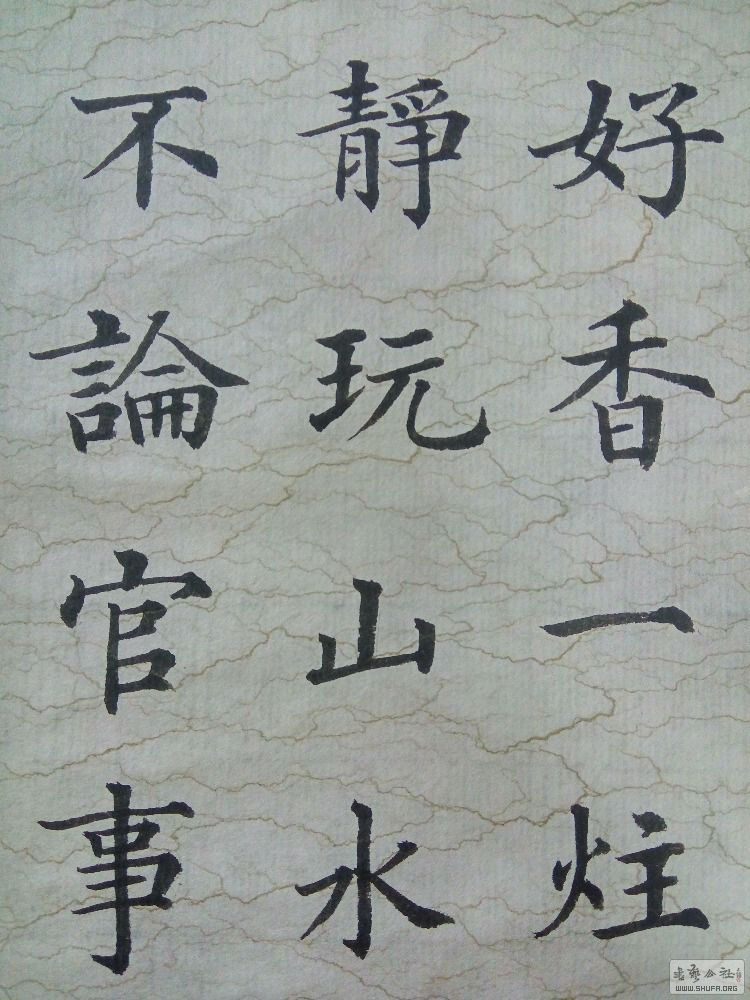 好香一炷
靜玩山水
不論官事
书艺公社
WWW.SHUFA.ORG